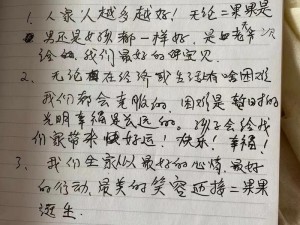 1. 人家人越多越好！无论二果果是
男还是女孩都一样好，是老天
给的，我们最好的宝贝
2、无论在经济或生活有啥困难
我们都会克服的。困难是暂时的
光明幸福是永远的。孩子会给我
们家带来快好运！快乐！幸福！
3、我们全家以最好的心情，最好
的行动，最美的笑容迎接二果果
诞生.